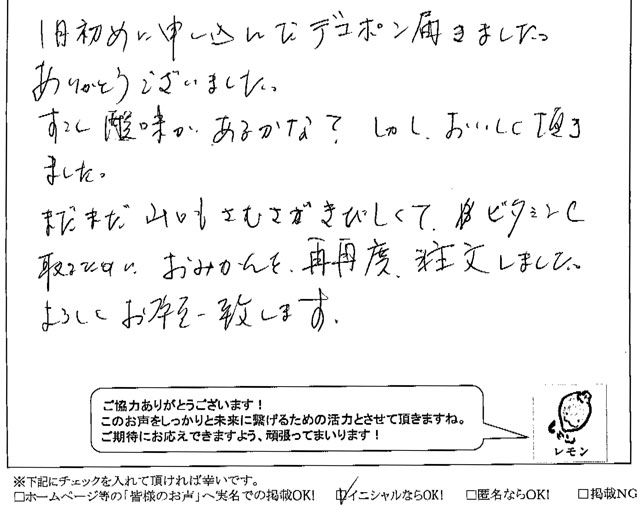 1月初めに申し込んだデコポン届きました。
ありがとうございました。
すこし酸味があるかな？しかし、おいしく頂き
ました。
まだまだ山口もさむさがきびしくて、ビタミンC
取るために、おみかんを、再再度、注文しました。
よろしくお願い致します。
ご協力ありがとうございます！
このお声をしっかりと未来に繋げるための活力とさせて頂きますね。
ご期待にお応えできますよう、頑張ってまいります！
レモン
※下記にチェックを入れて頂ければ幸いです。
□ホームページ等の「皆様のお声」へ実名での掲載OK！ ☑イニシャルならOK！ □匿名ならOK！ □掲載NG